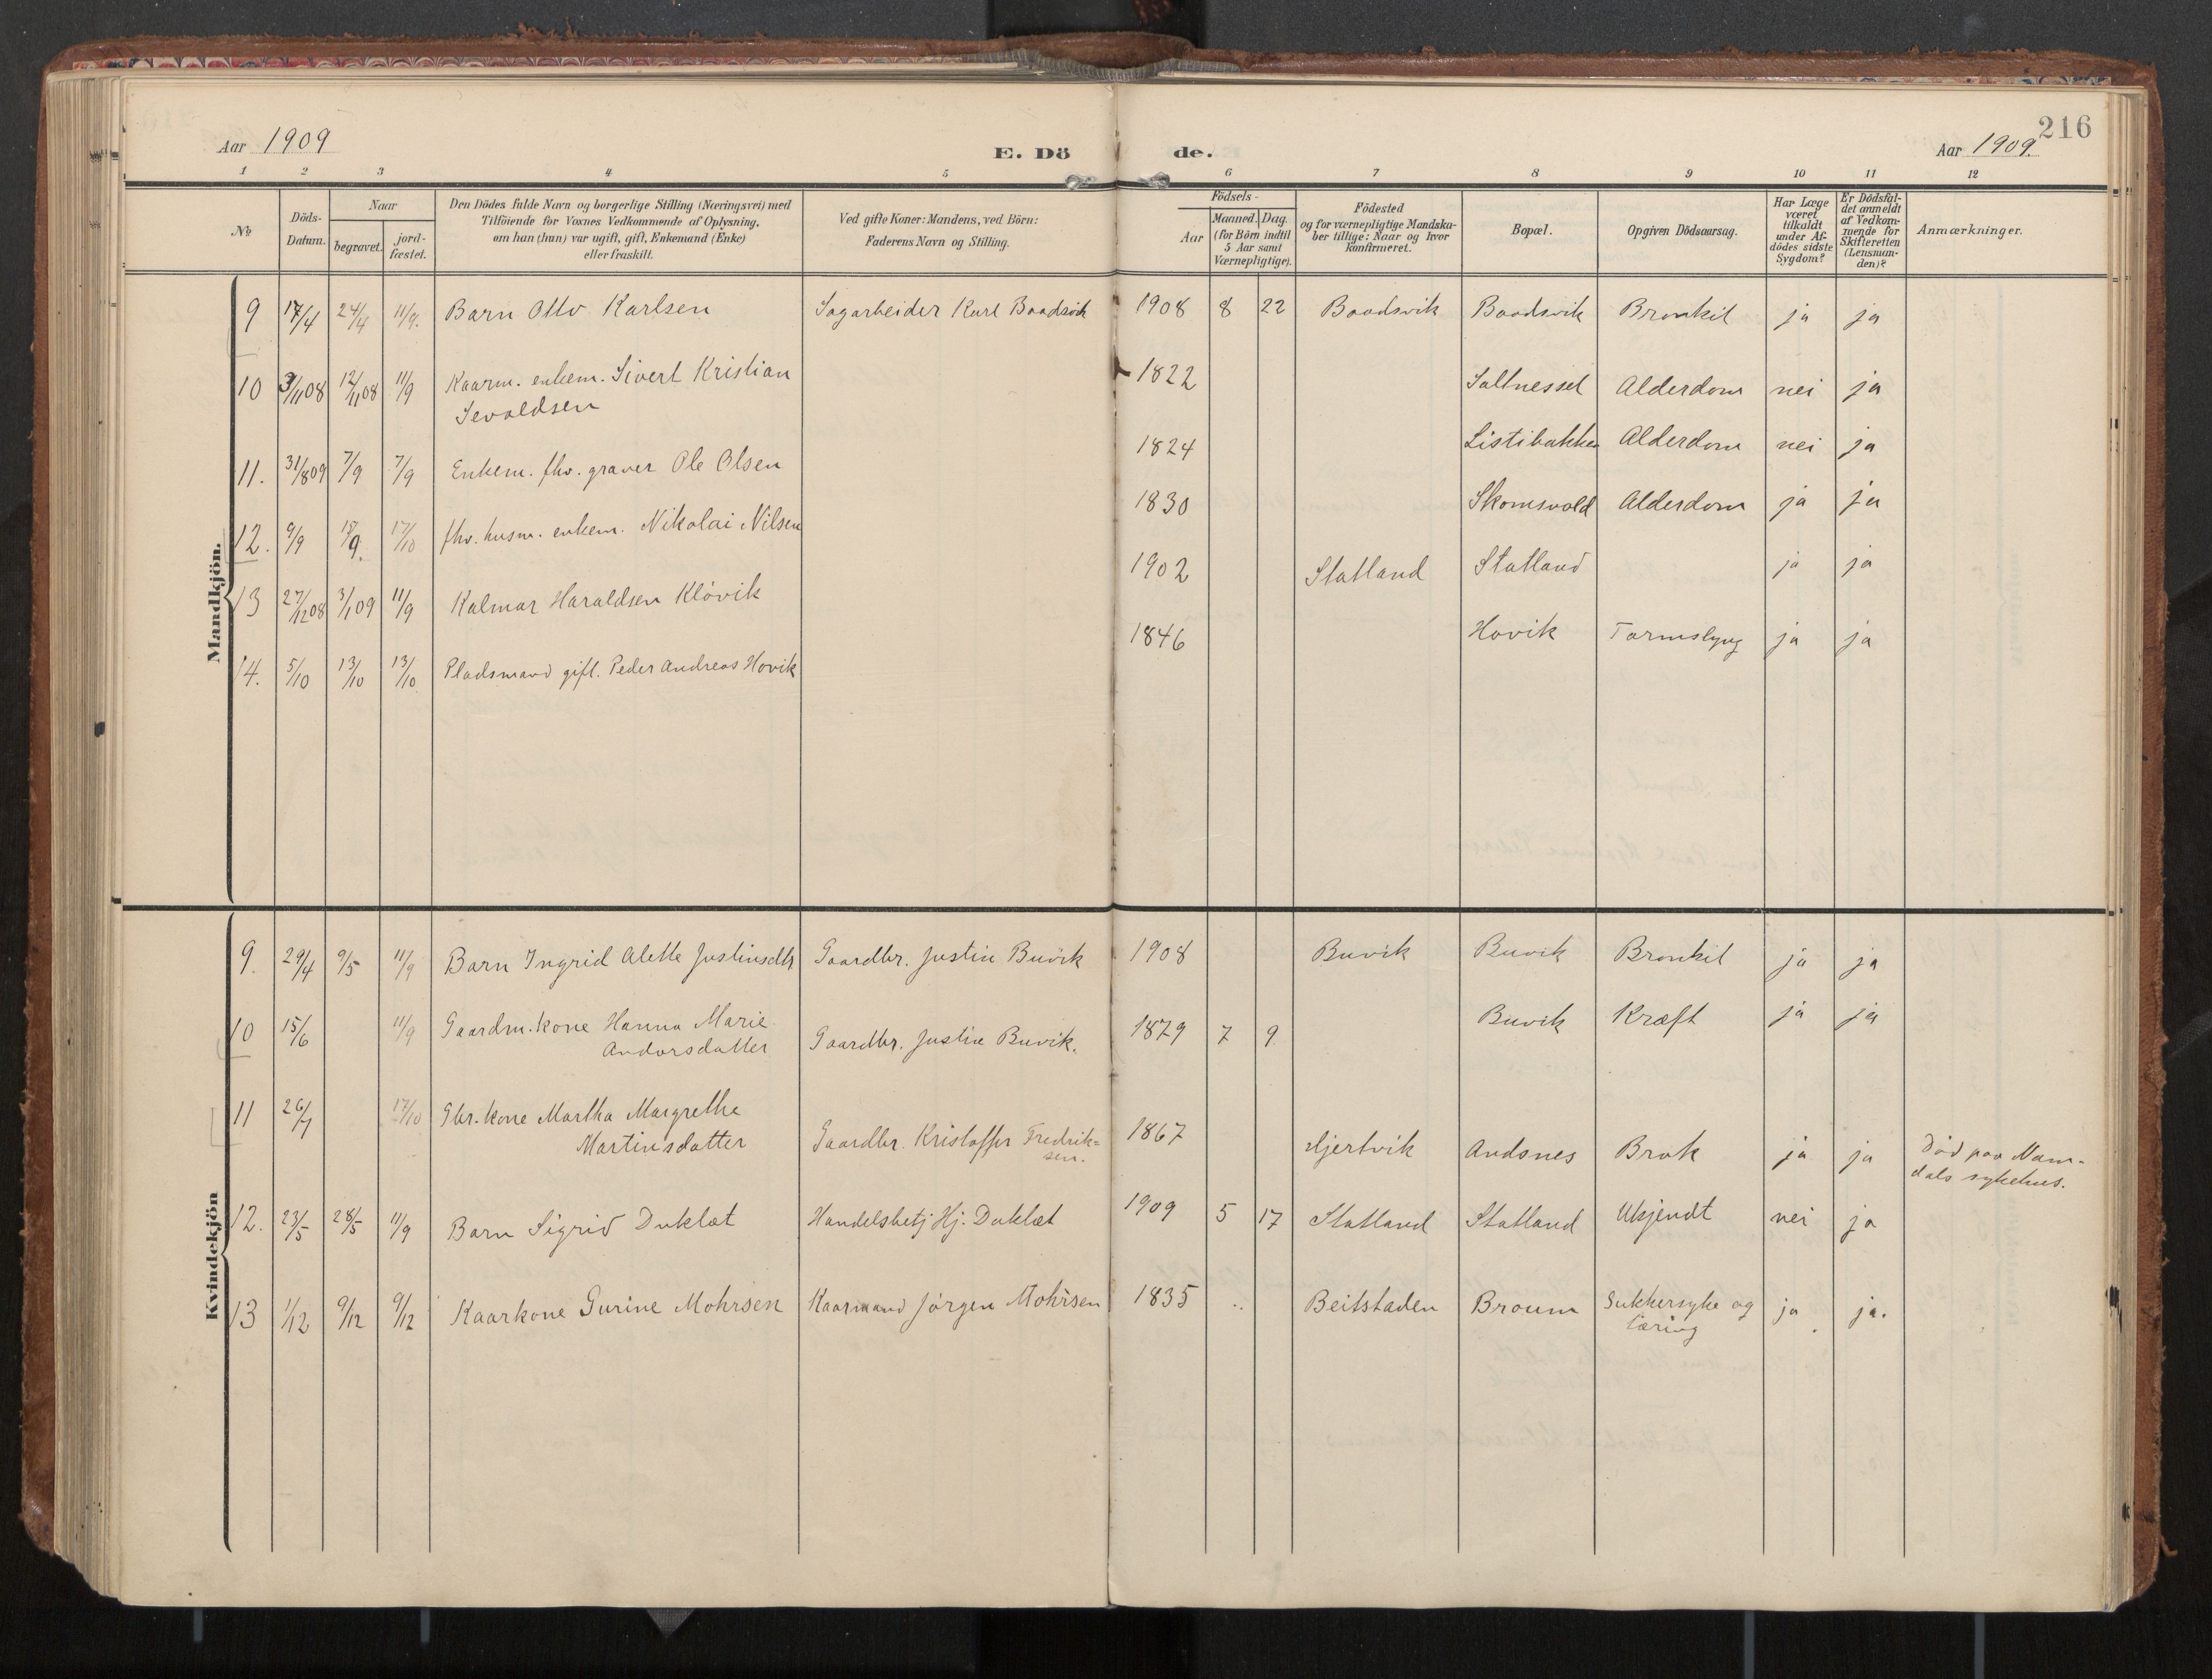 216
Aar 1909
E. Dö de.
Aar 1909.
1 2 3 4 5 6 7 8 9 10 11 12
No
Döds-
Datum.
Naar
begravet.
jord-
fæstet.
Den Dödes fulde Navn og borgerlige Stilling (Næringsvei) med
Tilföiende for Voxnes Vedkommende af Oplysning,
om han (hun) var ugift, gift, Enkemand (Enke)
eller fraskilt.
Ved gifte Koner: Mandens, ved Börn:
Faderens Navn og Stilling.
Födsels-
Aar
Maaned. Dag.
(for Börn indtil
5 Aar samt
Værnepligtige).
Födested
og for værnepligtige Mandska-
ber tillige: Naar og hvor
konfirmeret.
Bopæl.
Opgiven Dödsaarsag.
Har Læge
været
tilkaldt
under Af-
dödes sidste
Sygdom?
Er Dödsfal-
det anmeldt
af Vedkom-
mende for
Skifteretten
(Lensman-
den)?
Anmærkninger.
Mandkjön.
9 17/4 24/4 11/9. Barn Otto Karlsen Sagarbeider Karl Baadsvik 1908 8 22 Baadsvik Baadsvik Bronkit ja ja
10 3/11 08 12/11 08 11/9 Kaarm. enkem. Sivert Kristian
Sevaldsen 1822 Saltnesset Alderdom nei ja
11. 31/8 09 7/9 7/9 Enkem. fhv. graver Ole Olsen 1824 Listibakken Alderdom nei ja
12. 9/9 18/9. 17/10 fhv. husm. enkem. Nikolai Nilsen 1830 Skomsvold Alderdom ja ja
13 27/12 08 3/1 09 11/9 Kalmar Haraldsen Kløvik 1902 Statland Statland ja ja
14. 5/10 13/10 13/10. Pladsmand gift. Peder Andreas Hovik 1846 Hovik Tarmslyng ja ja
Kvindekjön
9. 29/4 9/5 11/9 Barn Ingrid Alette Justinsdtr Gaardbr. Justin Buvik 1908 Buvik Buvik Bronkit ja ja
10 15/6 11/9 Gaardm. kone Hanna Marie
Andorsdatter Gaardbr. Justin Buvik. 1879 7 9 Buvik Kræft ja ja
11 26/7 17/10 Gbr. kone Martha Margrethe
Martinsdatter Gaardbr. Kristoffer Fredrik=
sen. 1867 Hjertvik Andsnes Brok ja ja Død paa Nam-
dals sykehus.
12. 23/5 28/5 11/9 Barn Sigrid Duklæt Handelsbetj Hj. Duklæt 1909 5 17 Statland Statland Ukjendt nei ja
13 1/12 9/12 9/12 Kaarkone Gurine Mohrsen Kaarmand Jørgen Mohrsen 1835 .. Beitstaden Broum Sukkersyke og
tæring ja ja.